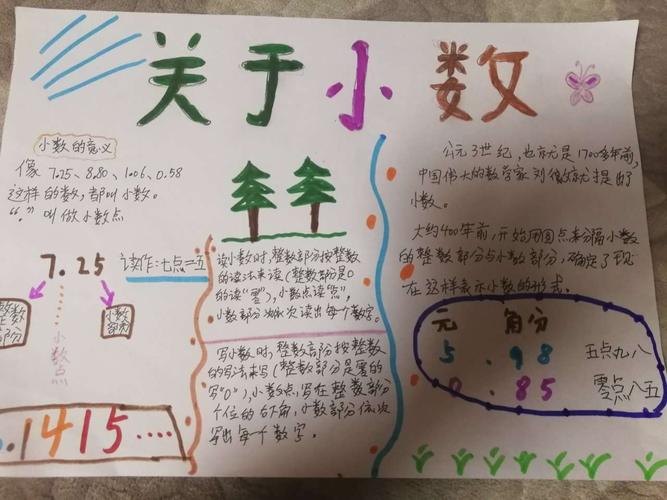 关于小数
小数的意义
像 7.25、8.80、1.06、0.58
这样的数，都叫小数。
“.”叫做小数点
7.25 读作:七点二五
整数
部分
小数
部分
小数点
.1415····
读小数时,整数部分按整数
的读法来读(整数部分是0
的读“零”),小数点读“点”,
小数部分依次读出每个数字。
写小数时,整数部分按整数
的写法来写(整数部分是零的
写“0”),小数点,写在整数部分
个位的右下角,小数部分依次
写出每一个数字。
公元3世纪,也就是1700多年前,
中国伟大的数学家刘徽就提出了
小数。
大约400年前,开始用圆点来分隔小数
的整数部分与小数部分,确定了现
在这样表示小数的形式。
元 角分
5.98 五点九八
0.85 零点八五